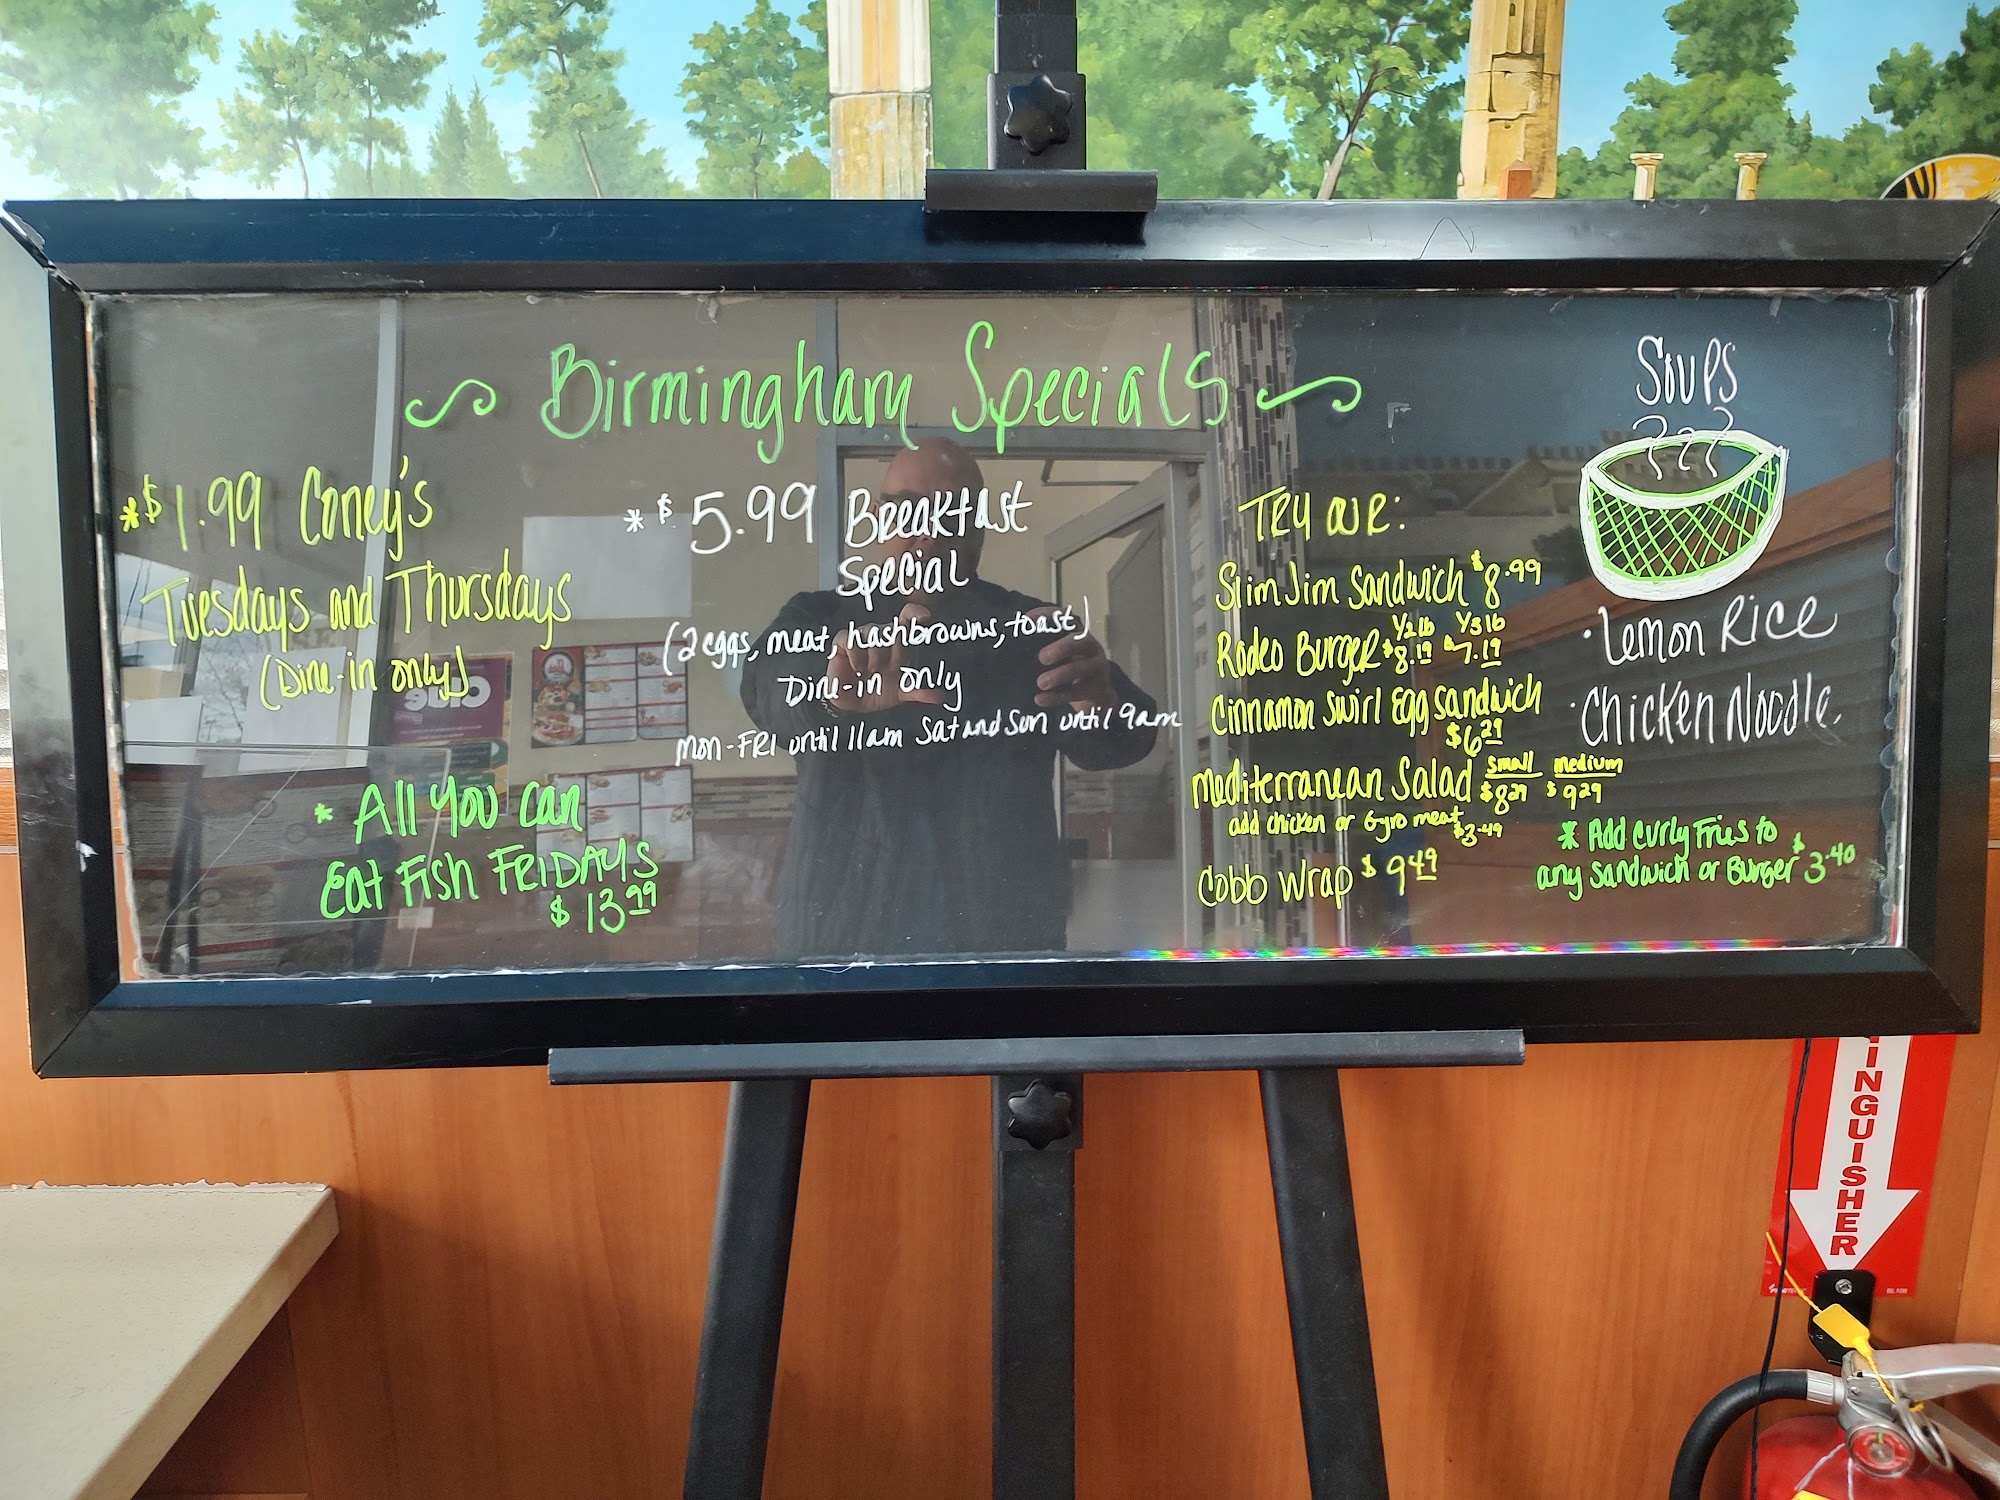 Birmingham Specials
*$1.99 Coney's
Tuesdays and Thursdays
(Dine-in only)
* All You can
Eat Fish FRIDAYS
$13.99
*$5.99 Breakfast
Special
(2 eggs, meat, hashbrowns, toast)
Dine-in only
Mon-FRI until 11am Sat and Sun until 9am
TRY OUR:
Slim Jim Sandwich $8.99
1/2 lb 1/3 lb
Rodeo Burger $8.19 $7.19
Cinnamon Swirl Egg Sandwich
$6.29
small medium
Mediterranean Salad $8.29 $9.29
add chicken or Gyro meat $3.49
Cobb Wrap $9.49
Soups
·Lemon Rice
·Chicken Noodle
* Add curly Fries to
any Sandwich or Burger $3.40
INGUISHER